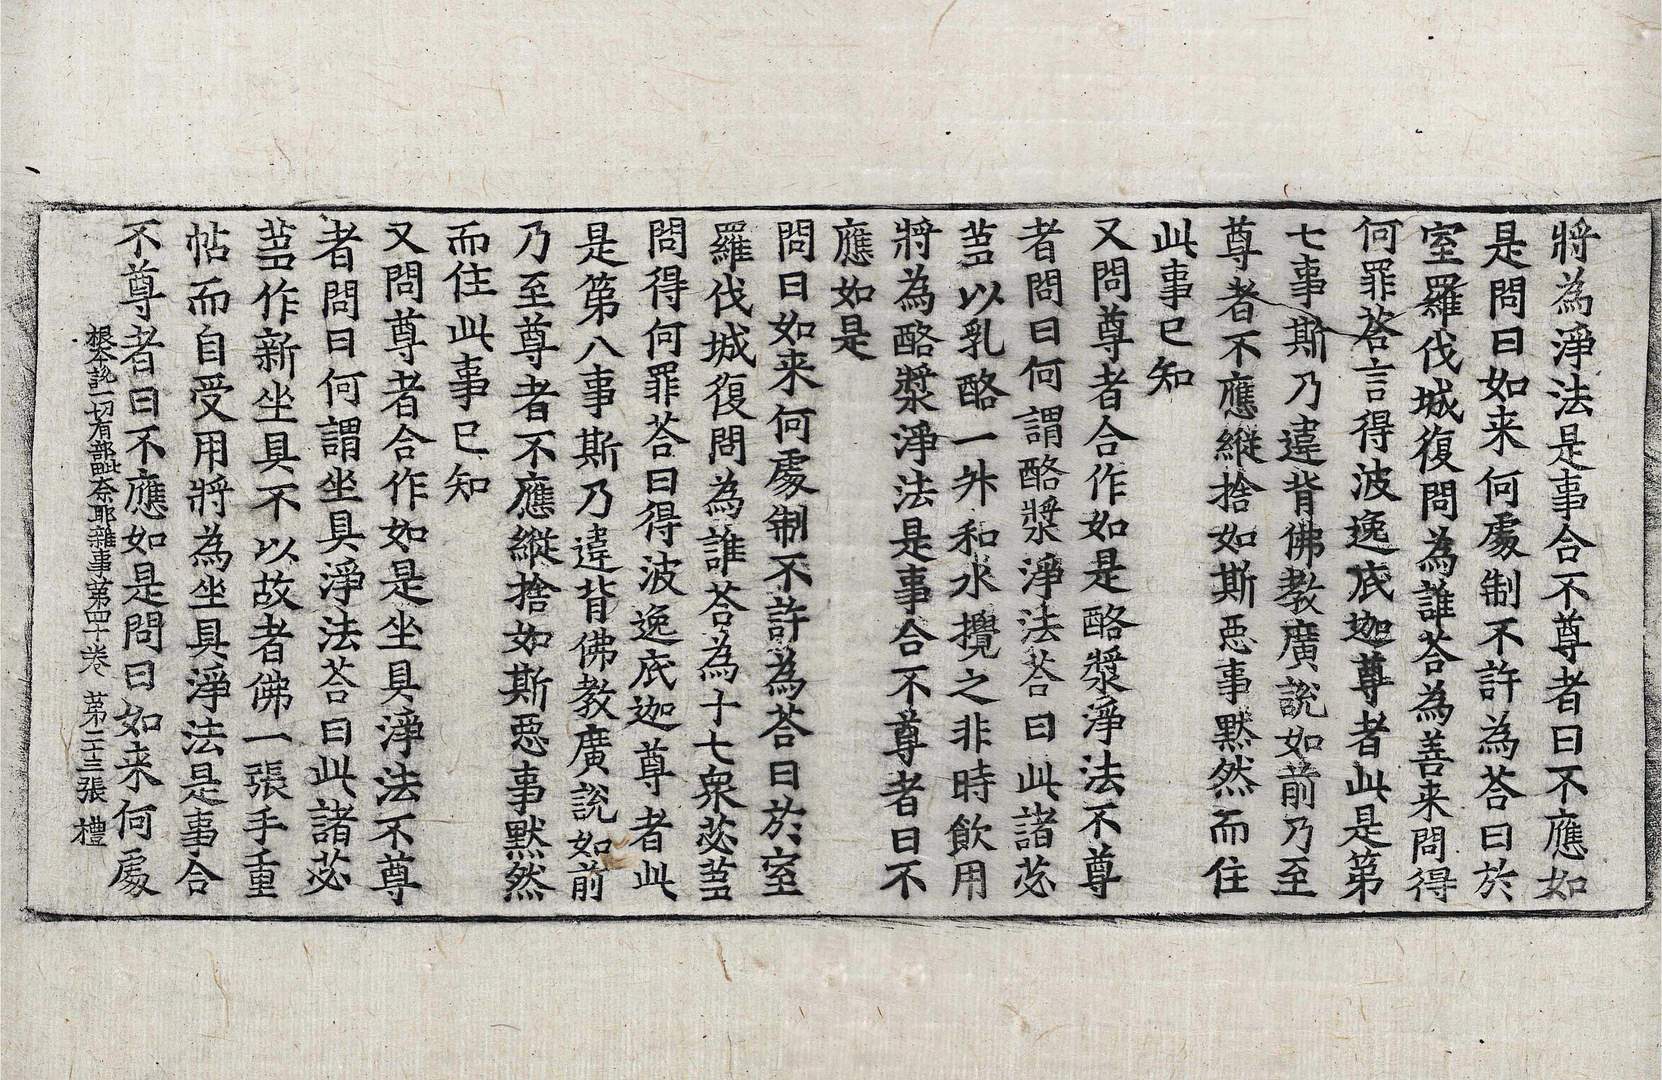 將為淨法是事合不尊者曰不應如
是問曰如来何處制不許為荅曰於
室羅伐城復問為誰荅為善来問得
何罪荅言得波逸底迦尊者此是第
七事斯乃違背佛教廣說如前乃至
尊者不應縱捨如斯惡事默然而住
此事已知
又問尊者合作如是酪漿淨法不尊
者問曰何謂酪漿淨法荅曰此諸苾
蒭以乳酪一升和水攪之非時飲用
將為酪漿淨法是事合不尊者曰不
應如是
問曰如来何處制不許為荅曰於室
羅伐城復問為誰荅為十七衆苾蒭
問得何罪荅曰得波逸底迦尊者此
是第八事斯乃違背佛教廣說如前
乃至尊者不應縱捨如斯惡事默然
而住此事已知
又問尊者合作如是坐具淨法不尊
者問曰何謂坐具淨法荅曰此諸苾
蒭作新坐具不以故者佛一張手重
帖而自受用將為坐具淨法是事合
不尊者曰不應如是問曰如来何處
根本說一切有部毗奈耶雜事第四十卷 第二十三張 禮